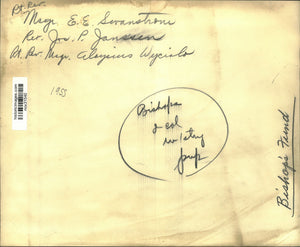 Rt. Rev.
Msgr. E.E. Swanstrom
Rev. Jos. P. Janssen
Rt. Rev. Msgr. Aloysius Wycislo
1953
Bishops
2 col
Bishop's Fund